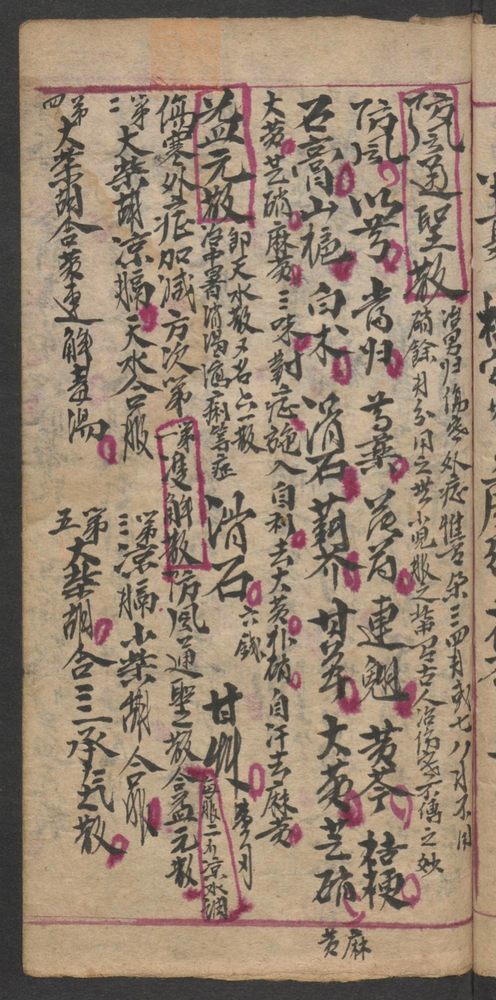 防風通聖散
治男婦傷寒外症惟□□三四月或七八月不用
硝餘月分用之共小兒服之□□古人治傷寒不傳之妙
防風 川芎 當归 芍藥 薄荷 連翹 黃芩 桔梗
石膏 山梔 白朮 滑石 荊芥 甘草 大黃 芒硝 麻黃
大黃芒硝麻黃三味對症施入自利去大黃朴硝自汗去麻黃
益元散 即天水散又名六一散
治中暑消渴瀉痢等症 滑石 六錢 甘草
每服二錢涼水調
傷寒外症加減方次第 第一雙解散 防風通聖散合益元散
第二 大柴胡涼膈天水合服 第三 涼膈小柴胡合服
第四 大柴胡合黃連解毒湯 第五 大柴胡合三承氣散